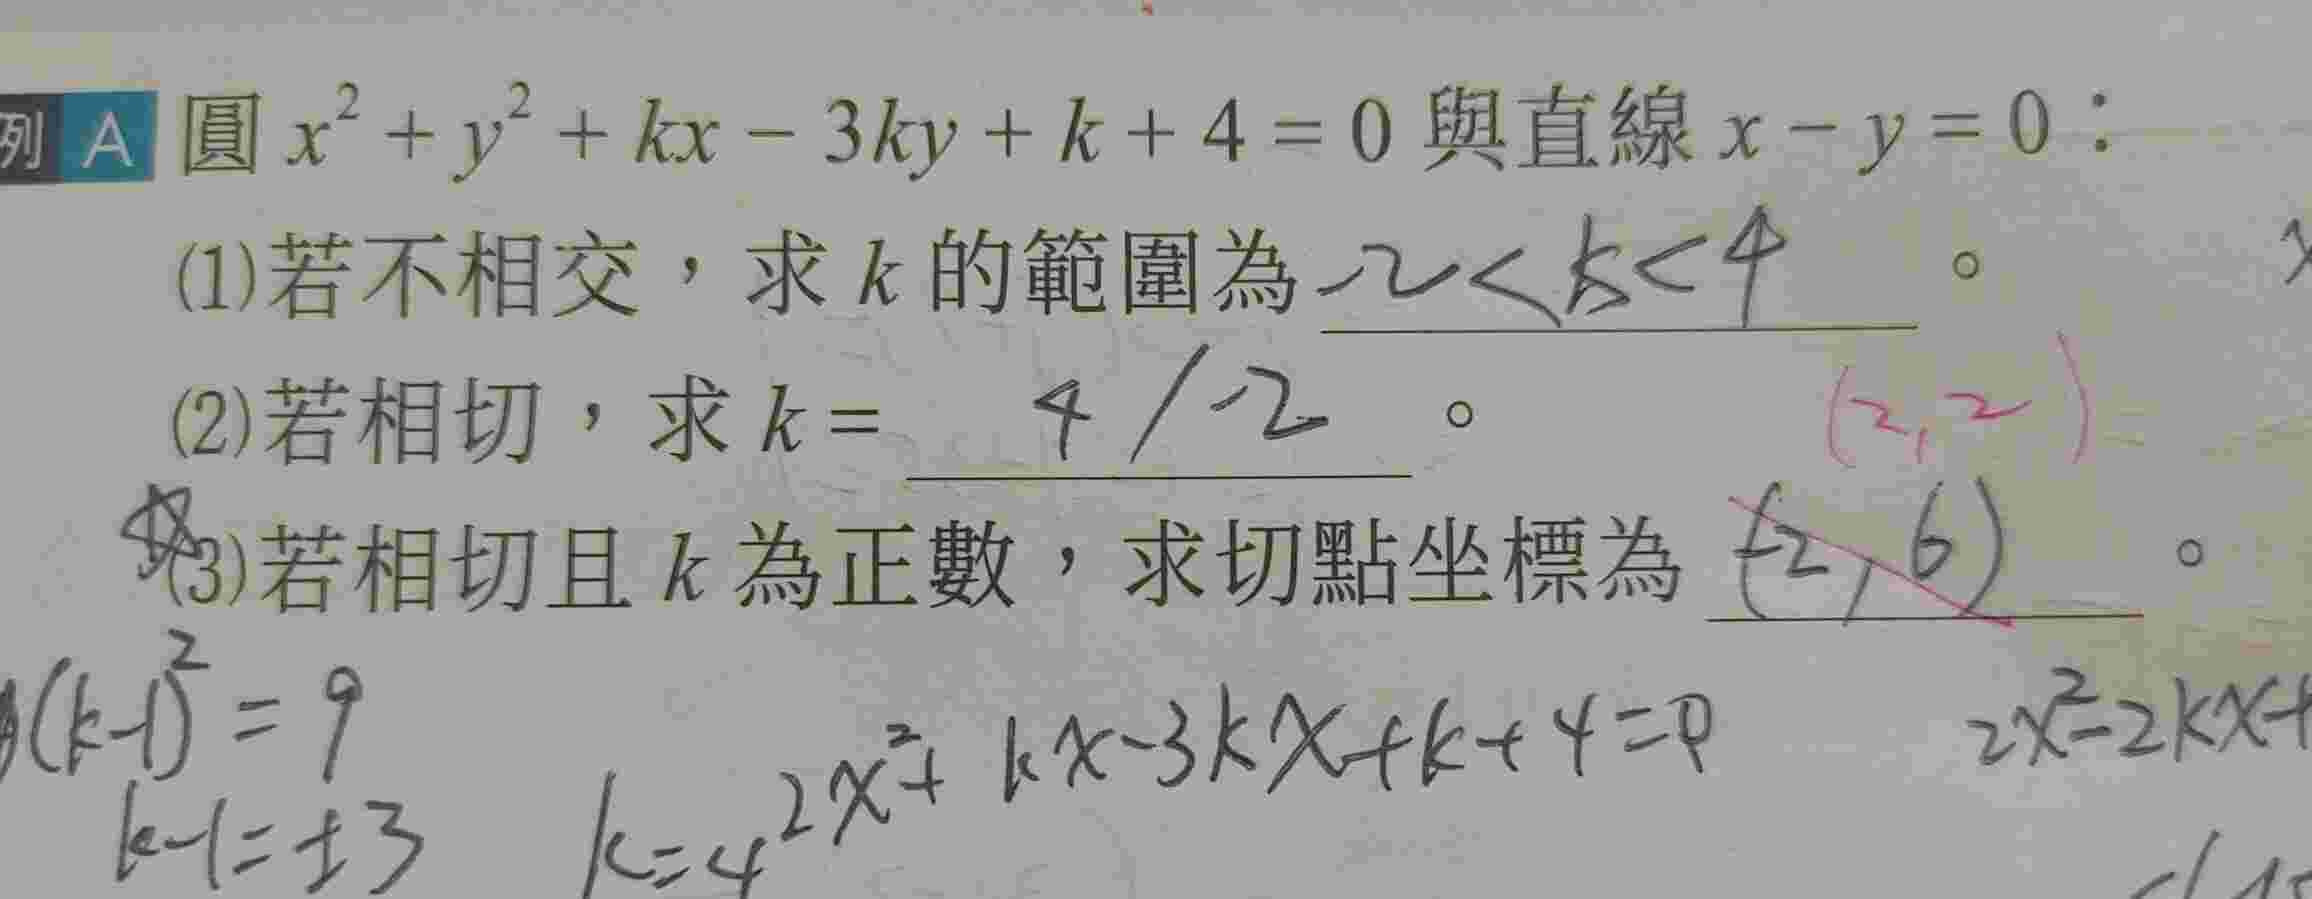 列 A 圓 x² + y² + kx − 3ky + k + 4 = 0 與直線 x − y = 0：
(1)若不相交，求 k 的範圍為 -2<k<4 。
(2)若相切，求 k = 4 / -2 。
(2, 2)
(3)若相切且 k 為正數，求切點坐標為 (-2, 6) 。
(k-1)² = 9
2x²+kx-3kx+k+4=0
2x²-2kx+
k-1=±3
k=4